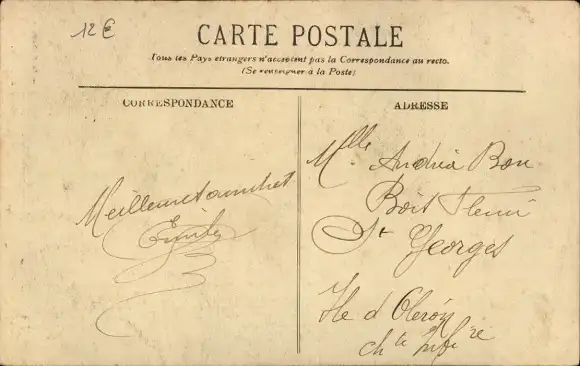 12 €
CARTE POSTALE
Tous les Pays etrangers n'acceptent pas la Correspondance au recto.
(Se renseigner à la Poste)
CORRESPONDANCE
ADRESSE
Meilleure
Emile
Mlle Andréa Bon
Boit Fleuri
St Georges
Ile d Oleron
chte Infére